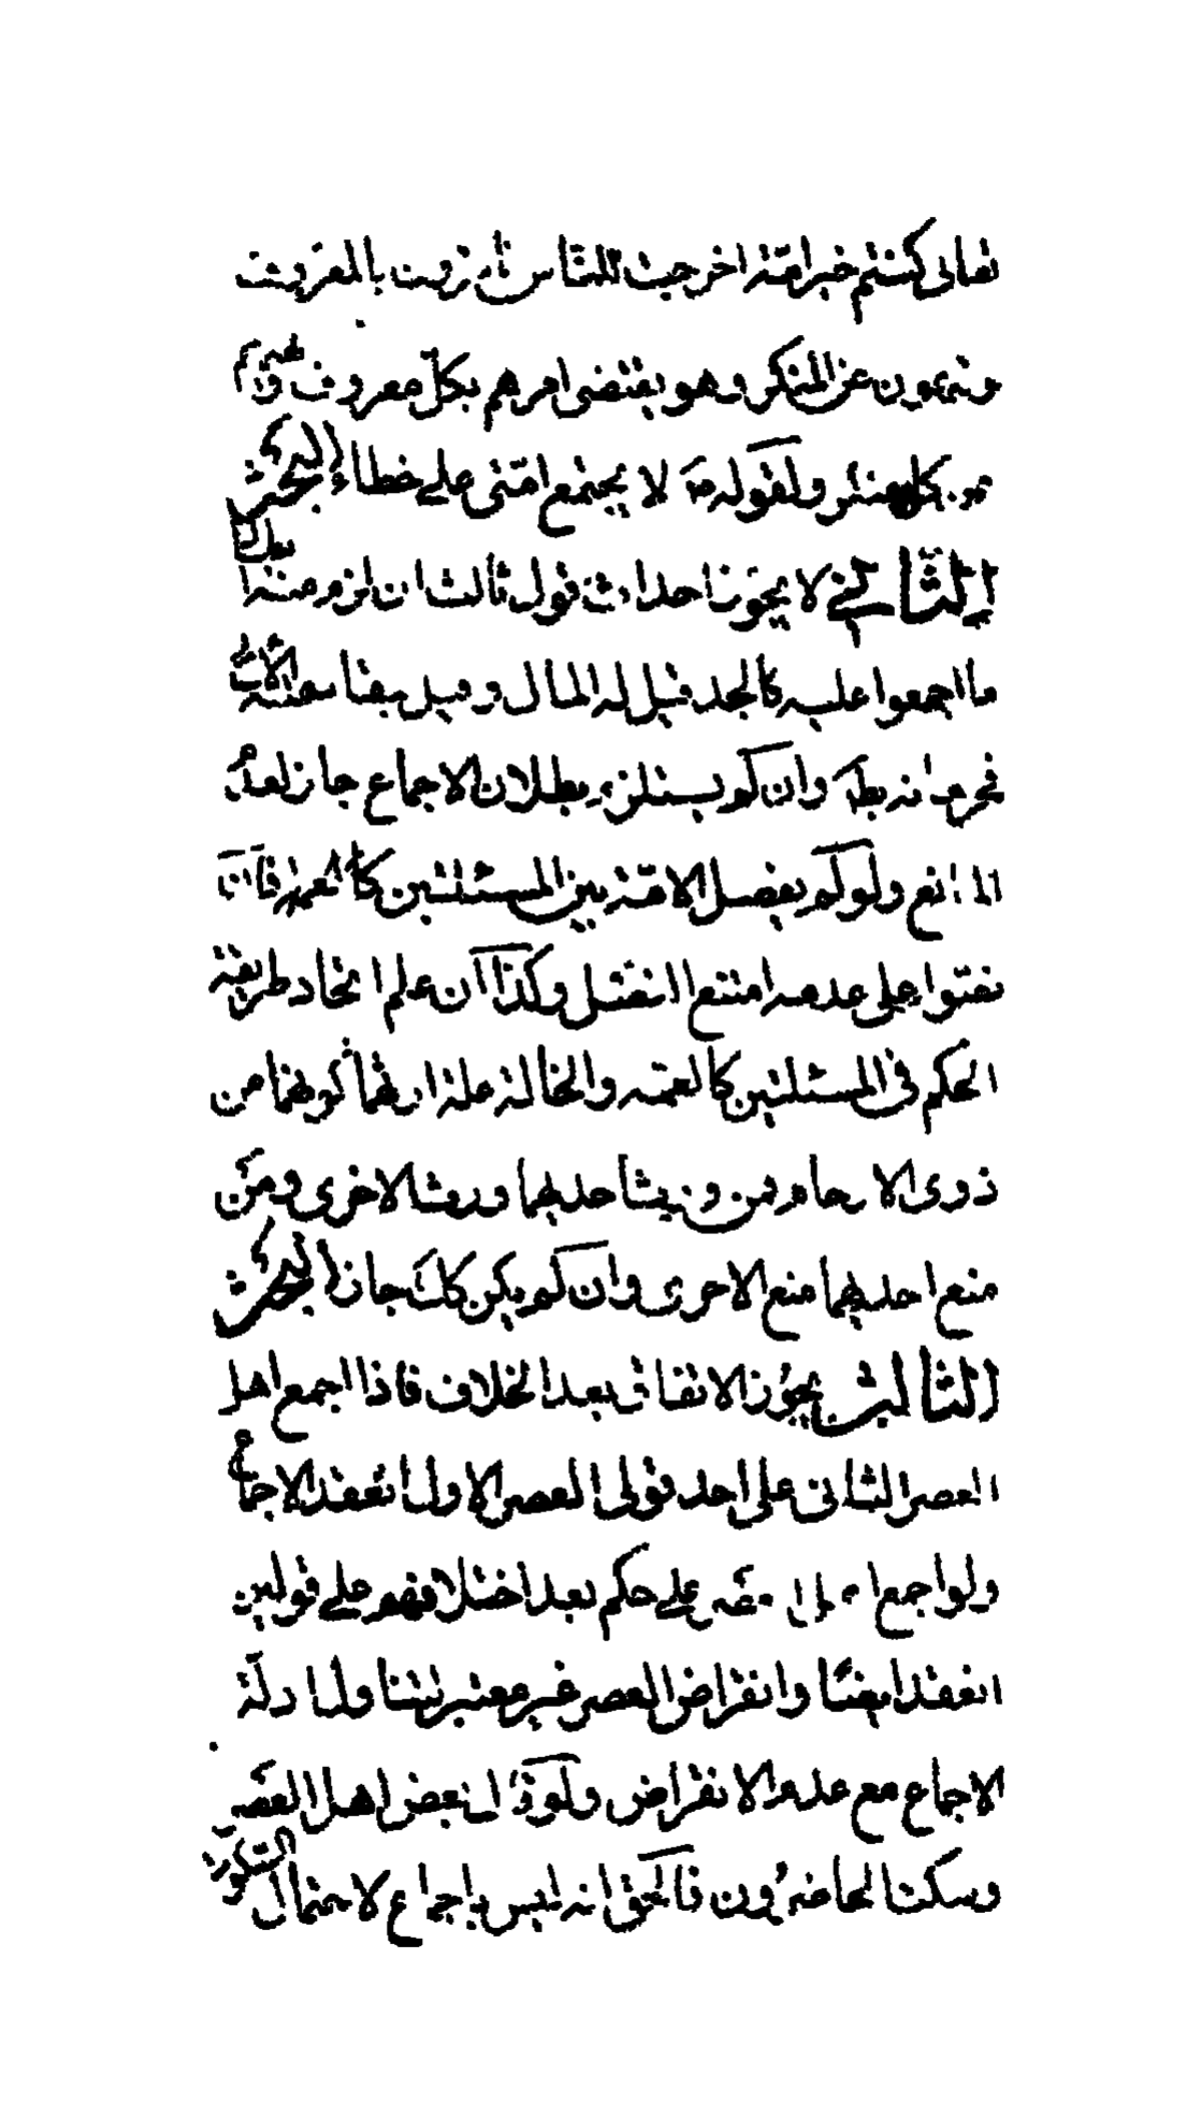 تعالى كنتم خير امة اخرجت للناس تأمرون بالمعروف
وتنهون عن المنكر وهو يقتضى امرهم بكل معروف ونهيهم
عن كل منكر ولقوله ص لا يجتمع امتى على خطاء البحث
الثاني لا يجوز احداث قول ثالث ان لزم منه ابطال
ما اجمعوا عليه كالجد قيل له المال وقيل يقاسم الاخ
فحرمانه بط وان لم يستلزم بطلان الاجماع جاز لعدم
المانع ولو لم يفصل الامة بين المسئلتين فان
نصوا على عدمه امتنع الفصل وكذا ان علم اتحاد طريقة
الحكم فى المسئلتين كالعمة والخالة علة ارثهما كونهما من
ذوى الارحام فمن ورث احديهما ورث الاخرى ومن
منع احديهما منع الاخرى وان لم يكن كك جاز البحث
الثالث يجوز الاتفاق بعد الخلاف فاذا اجمع اهل
العصر الثانى على احد قولى العصر الاول انعقد الاجماع
ولو اجمع اهل العصر على حكم بعد اختلافهم على قولين
انعقد ايضا وانقراض العصر غير معتبر لتناول ادلة
الاجماع مع عدم الانقراض ولو قال بعض اهل العصر
وسكت الحاضرون فالحق انه ليس باجماع لاحتمال السكوت